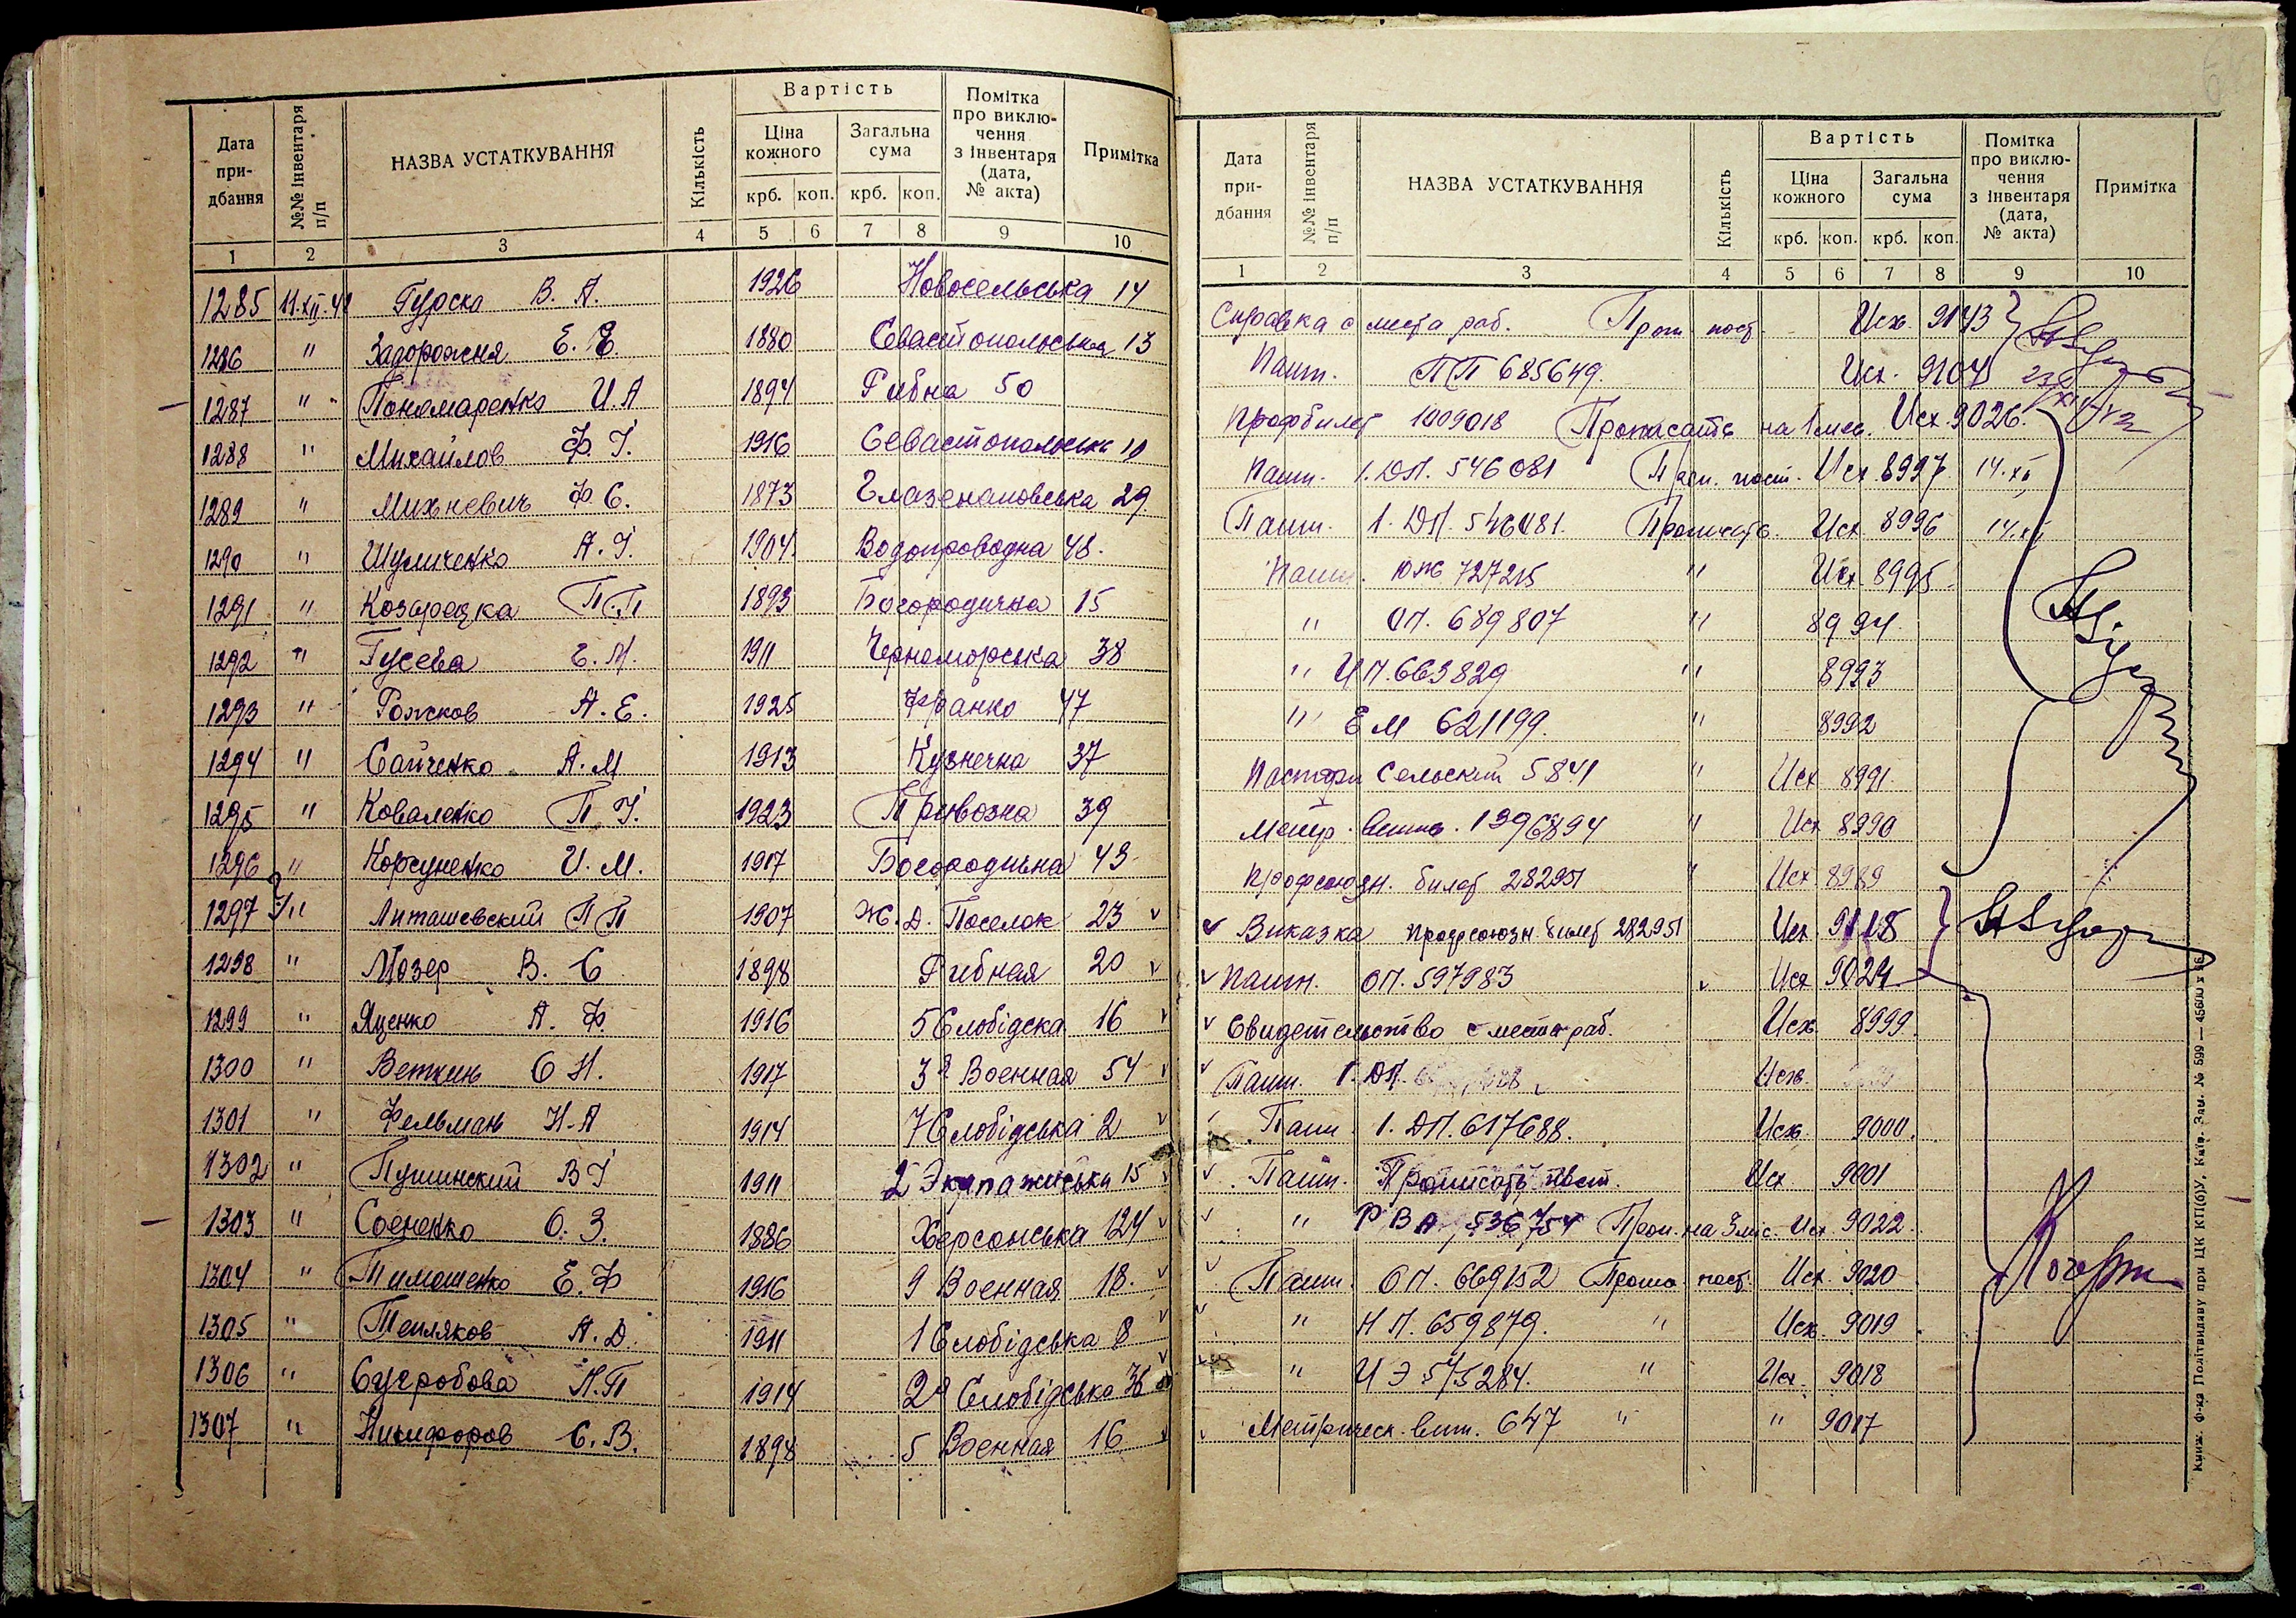 Дата придбання №№ інвентаря п/п НАЗВА УСТАТКУВАННЯ Кількість Вартість Ціна кожного крб. коп. Загальна сума крб. коп. Помітка про виключення з інвентаря (дата, № акта) Примітка
1 2 3 4 5 6 7 8 9 10
1285 11.XII.41 Гурска В. А. 1926 Новосельська 14
1286 " Задорожня Е. Е. 1880 Севастопольська 13
1287 " Пономаренко И. А 1894 Рибна 50
1288 " Михайлов Ф. Г. 1916 Севастопольська 10
1289 " Михневич Ф. С. 1873 Глазенаповська 29
1290 " Шумиченко А. Г. 1904. Водопроводна 48.
1291 " Козарецка П. П 1893 Богородична 15
1292 " Гусева Е. М. 1911 Черноморська 38
1293 " Рожков А. Е. 1925 Франко 47
1294 " Сайченко А. М 1913 Кузнечна 37
1295 " Коваленко П. Г. 1923 Привозна 39
1296 " Корсуненко И. М. 1917 Богородична 43
1297 Литашевский П П 1907 Ж. Д. Поселок 23 v
1298 " Мозер В. С 1898 Рибная 20 v
1299 " Яценко А. Ф. 1916 5 Слобідска 16 v
1300 " Веткин С Н. 1917 3я Военная 54 v
1301 " Фельман Н. А 1914 7 Слобідська 2 v
1302 " Пушинский В Г 1911 2 Экипажеська 15 v
1303 " Соененко О. З. 1886 Херсонська 124 v
1304 " Тимошенко Е. Ф 1916 9 Военная 18. v
1305 " Тепляков А. Д. 1911 1 Слобідська 8 v
1306 " Сугробова Н. П 1914 2я Слобідська 36
1307 " Никифоров С. В. 1898 5 Военная 16 v
Дата придбання №№ інвентаря п/п НАЗВА УСТАТКУВАННЯ Кількість Вартість Ціна кожного крб. коп. Загальна сума крб. коп. Помітка про виключення з інвентаря (дата, № акта) Примітка
1 2 3 4 5 6 7 8 9 10
Справка с места раб. Проп. пост. Исх. 9143
Пашп. ПП 685649. Исх. 9104
Профбилет 1009018 Прописать на 1 мес. Исх. 9026.
Пашп. 1. ДП. 546081 пост. Исх 8997 14.XII
Пашп. 1. ДП. 546081. Прописать. Исх 8996 14.XII
Пашп. ЮЖ 727215 " Исх 8995.
" ОП. 689807 " 8994.
" ИП. 663829 " 8993
" ЕМ 621199. " 8992
Сельский 5841 " Исх 8991.
Метр. 1396894 " Исх 8990
Профсоюзн. билет 282951 " Исх 8989
v Виказка профсоюзн. билет 282951 Исх 9118
v Пашп. ОП. 597983 Исх 9024
v Свидетельство с места раб. Исх. 8999.
v Пашп. 1. ДП. Исх.
Пашп. 1. ДП. 617688. Исх. 9000.
v Пашп. Прописать пост. Исх 9001
v " Р В А 536754 Проп. на 3 міс. Исх 9022.
v Пашп. ОП. 669152 пост. Исх. 9020
v " Н П. 659879. " Исх. 9019
" И Э 575284. " Исх. 9018
v Метрическ. 647 " " 9017
Книж. Ф-ка Політвидаву при ЦК КП(б)У, Київ. Зам. № 599 — 45600 х 96